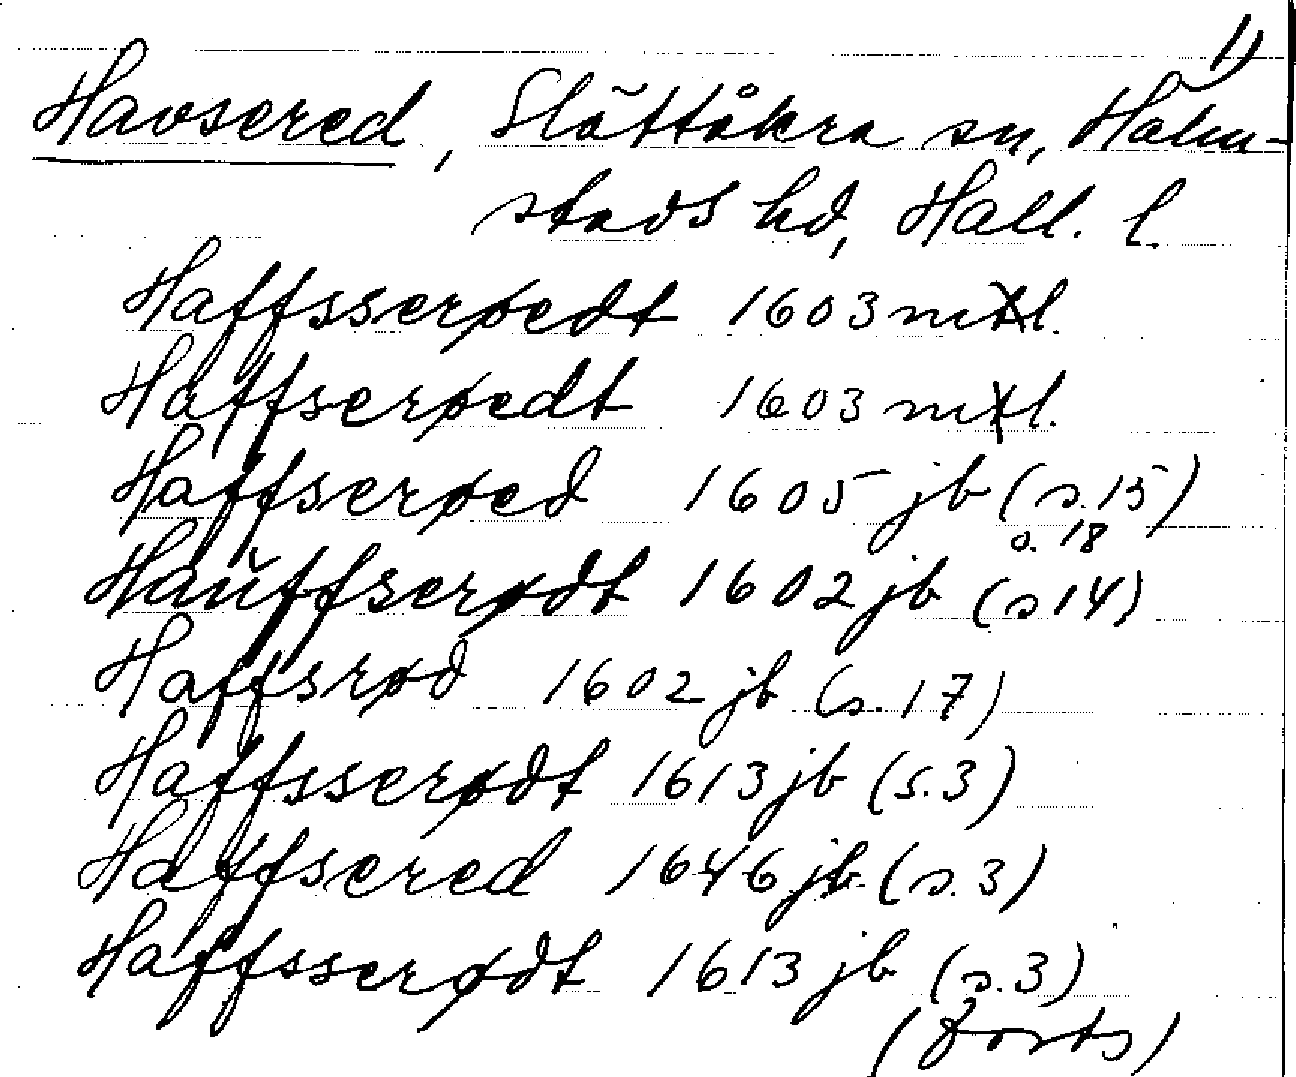 1)
Havsered, Slättåkra sn, Halm-
stads hd, Hall. l.
Haffsserøedt 1603 mtl.
Haffserøedt 1603 mtl.
Haffserøed 1605 jb (s.15)
s. 18
Hauffserødt 1602 jb (s 14)
Haffsrød 1602 jb (s. 17)
Haffsserødt 1613 jb (s.3)
Haffsered 1646 jb (s.3)
Haffsserødt 1613 jb (s.3)
(forts)